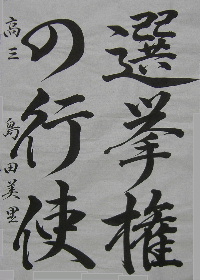 選挙権
の行使
高三 島田美里